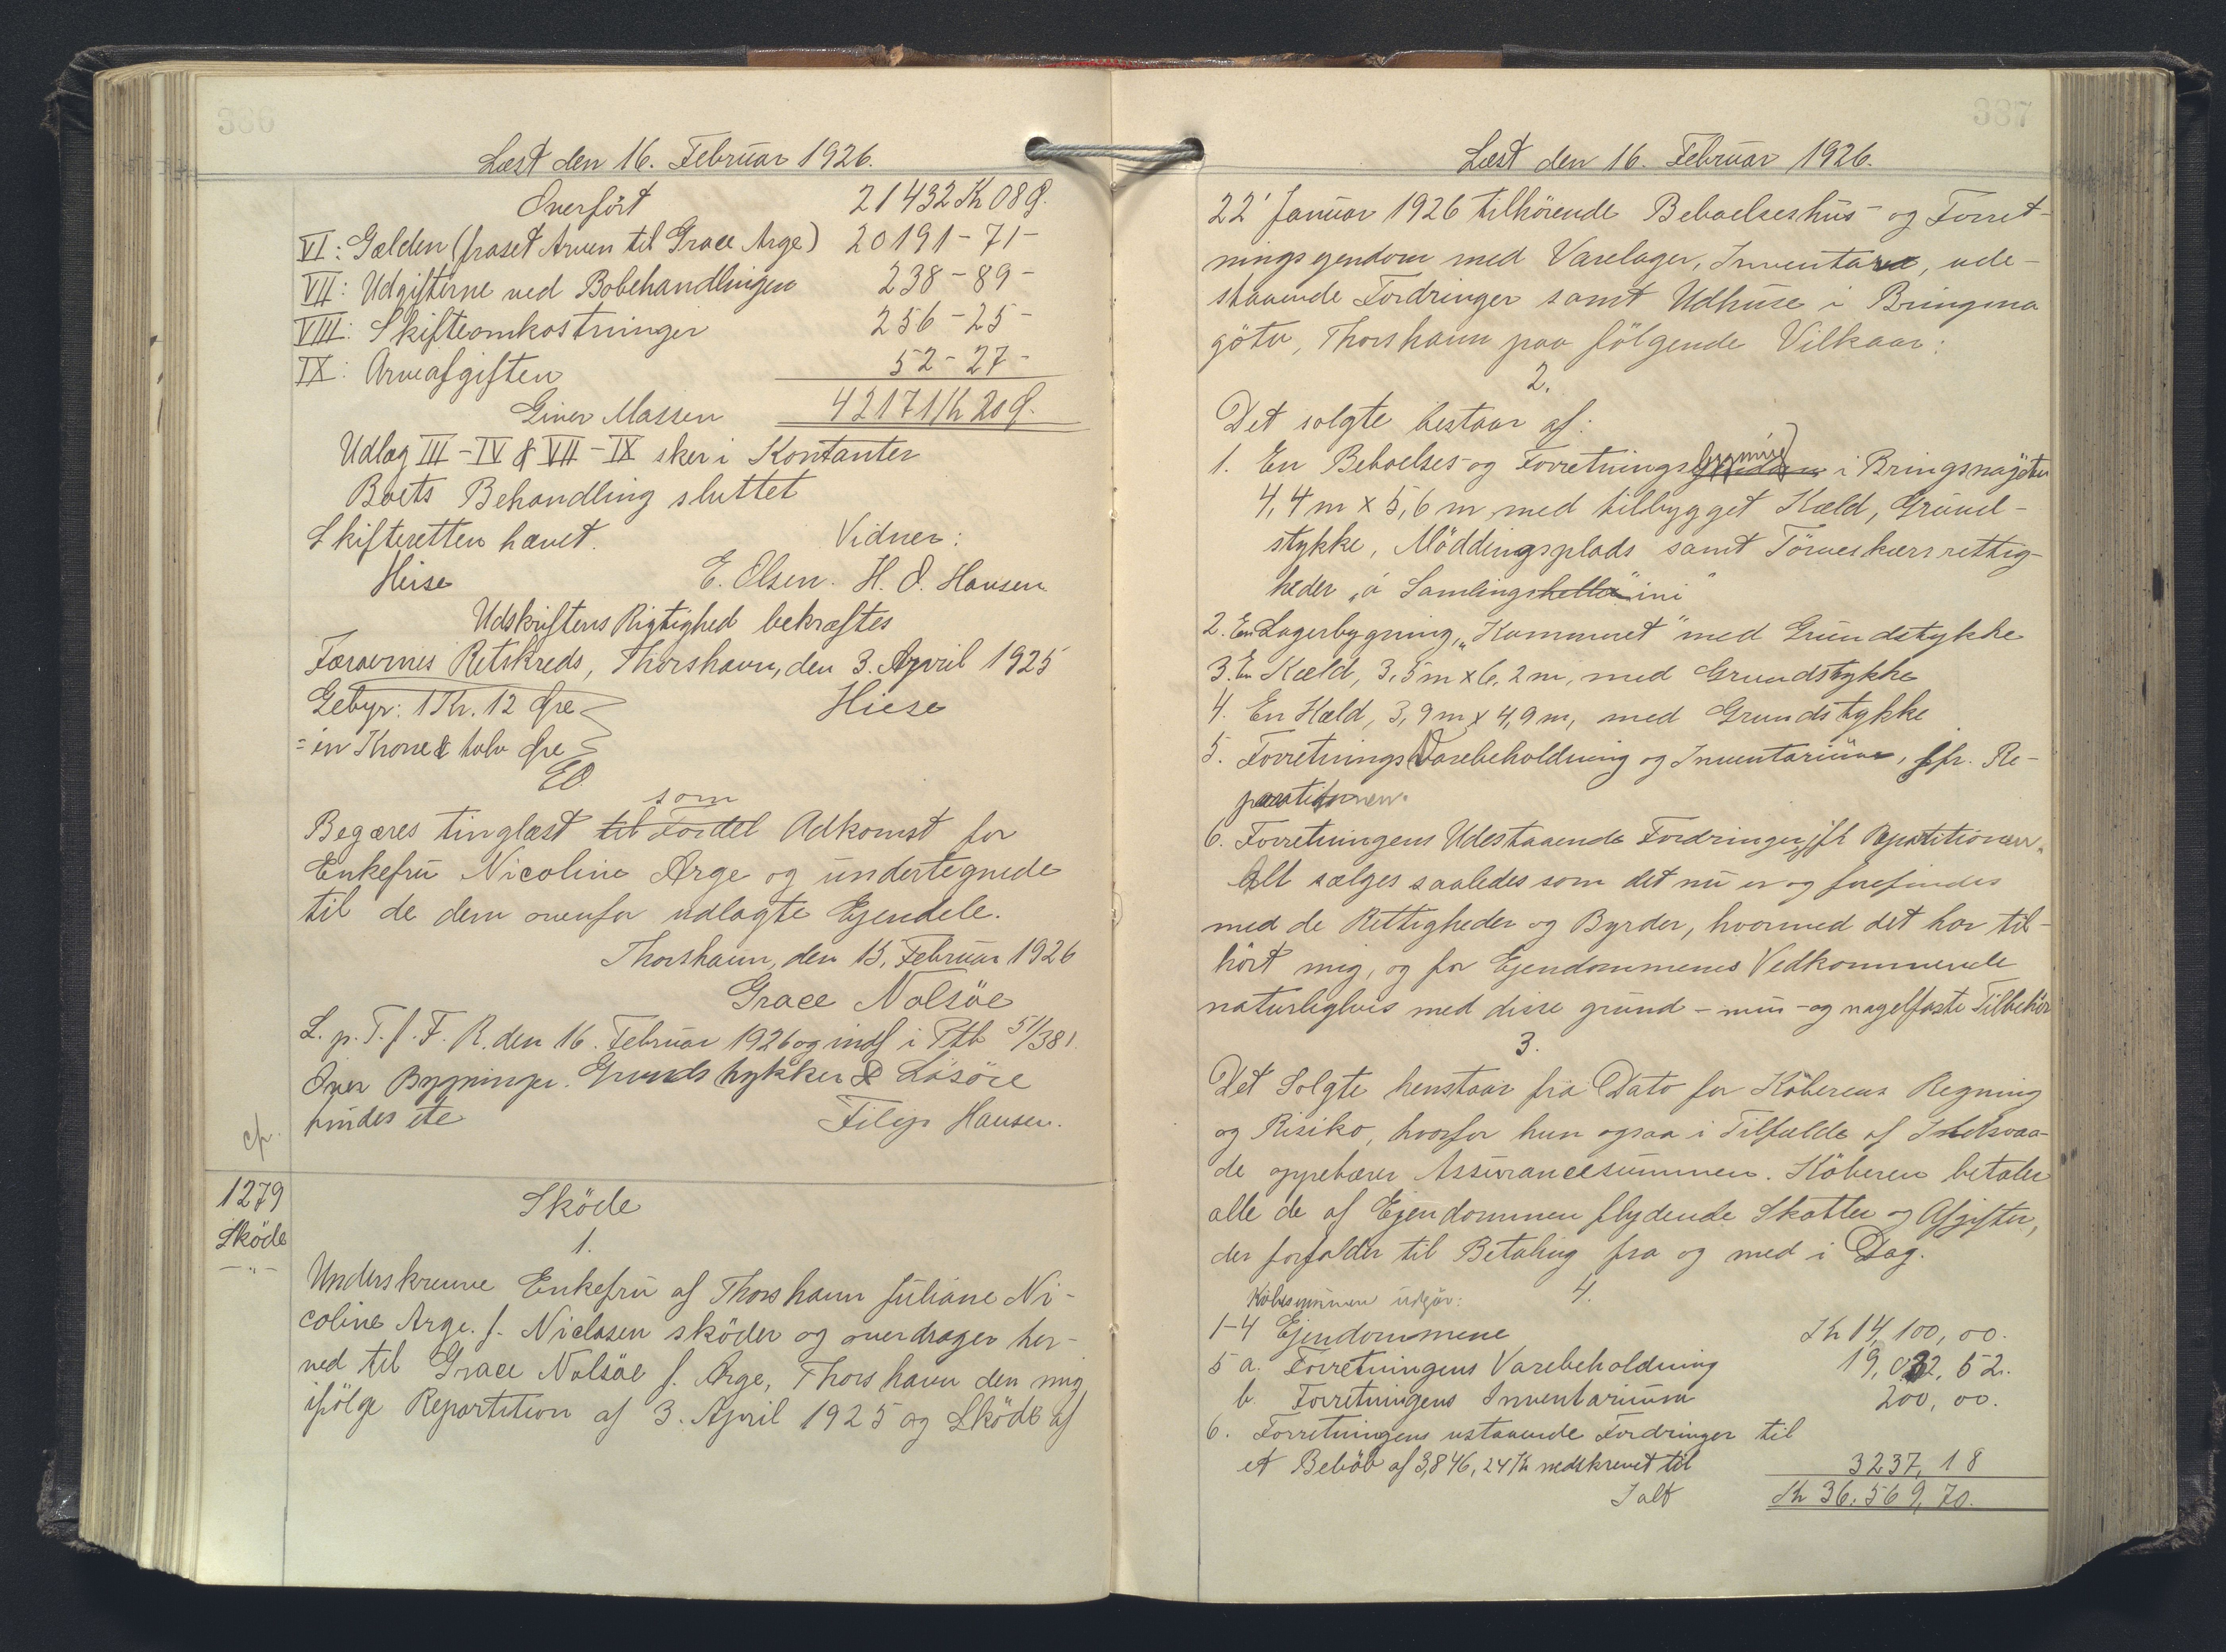 386
Læst den 16. Februar 1926.
Overført 21432 Kr 08 Ø.
VI: Gælden (fraset Arven til Grace Arge) 20191-71-
VII: Udgifterne ved Bobehandlingen 238-89-
VIII: Skifteomkostninger 256-25-
IX: Arveafgiften 52-27-
Giver Massen 42171 Kr 20 Ø.
Udlæg III-IV & VII-IX sker i Kontanter
Boets Behandling sluttet
Skifteretten hævet. Vidner:
Heise E. Olsen. H. O. Hansen
Udskriftens Rigtighed bekræftes
Færøernes Retskreds, Thorshavn, den 3. April 1925
Gebyr: 1 Kr. 12 Øre Hiese
= en Krone & tolv Øre
EO.
som
Begæres tinglæst til Fordel Adkomst for
Enkefru Nicoline Arge og undertegnede
til de dem ovenfor udlagte Ejendele.
Thorshavn, den 15. Februar 1926
Grace Nolsöe
L. p. T. f. F. R. den 16. Februar 1926 og indf i Ptb 51/381.
Over Bygninger. Grundstykker & Lösöre
findes ete Filip Hansen.
cp.
1279
Sköde
-"-
Sköde
1.
Underskrevne Enkefru af Thorshavn Juliane Ni-
coline Arge. f. Niclasen sköder og overdrager her-
ved til Grace Nolsöe f. Arge, Thorshavn den mig
ifölge Repartition af 3. April 1925 og Sköde af
387
Læst den 16. Februar 1926.
22' Januar 1926 tilhörende Beboelseshus- og Forret-
ningsejendom med Varelager, Inventar, ude-
staaende Fordringer samt Udhuse i Bringsna
götu, Thorshavn paa fölgende Vilkaar:
2.
Det solgte bestaar af:
1. En Beboelses- og Forretningsbygning i Bringsnagötu
4,4 m x 5,6 m med tilbygget Kæld, Grund-
stykke, Möddingsplads samt Törveskærsrettig-
heder "á Samlingshella" ini"
2. En Lagerbygning, "Kammeret" med Grundstykke
3. En Kæld, 3,5 m x 6,2 m, med Grundstykke
4. En Kæld, 3,9 m x 4,9 m, med Grundstykke
5. Forretnings Varebeholdning og Inventarium, jfr. Re-
partitionen.
6. Forretningens Udestaaende Fordringer, jfr Repartitionen.
Alt sælges saaledes som det nu er og forefindes
med de Rettigheder og Byrder, hvormed det har til-
hört mig, og for Ejendommenes Vedkommende
naturligvis med disse grund- mur- og nagelfaste Tilbehör
3.
Det Solgte henstaar fra Dato for Köberens Regning
og Risiko, hvorfor hun ogsaa i Tilfælde af Ildsvaa-
de oppebærer Assurancesummen. Köberen betaler
alle de af Ejendommen flydende Skatter og Afgifter,
der forfalder til Betaling fra og med i Dag.
4.
Köbesummen udgör:
1-4 Ejendommene Kr 14,100,00.
5 a. Forretningens Varebeholdning 19,032,52.
b. Forretningens Inventarium 200,00.
6. Forretningens ustaaende Fordringer til
et Belöb af 3,846,24 Kr nedskrevet til 3237,18
Ialt Kr 36.569,70.